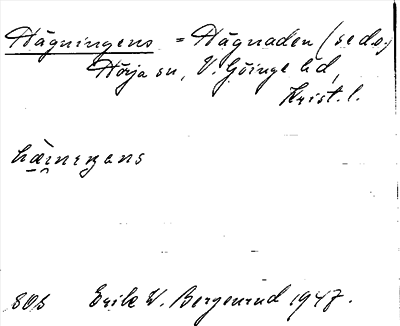 Hägningens = Hägnaden (se d.o.)
Hörja sn, V. Göinge hd,
Krist. l.
808 Erik W. Bergenrud 1947.